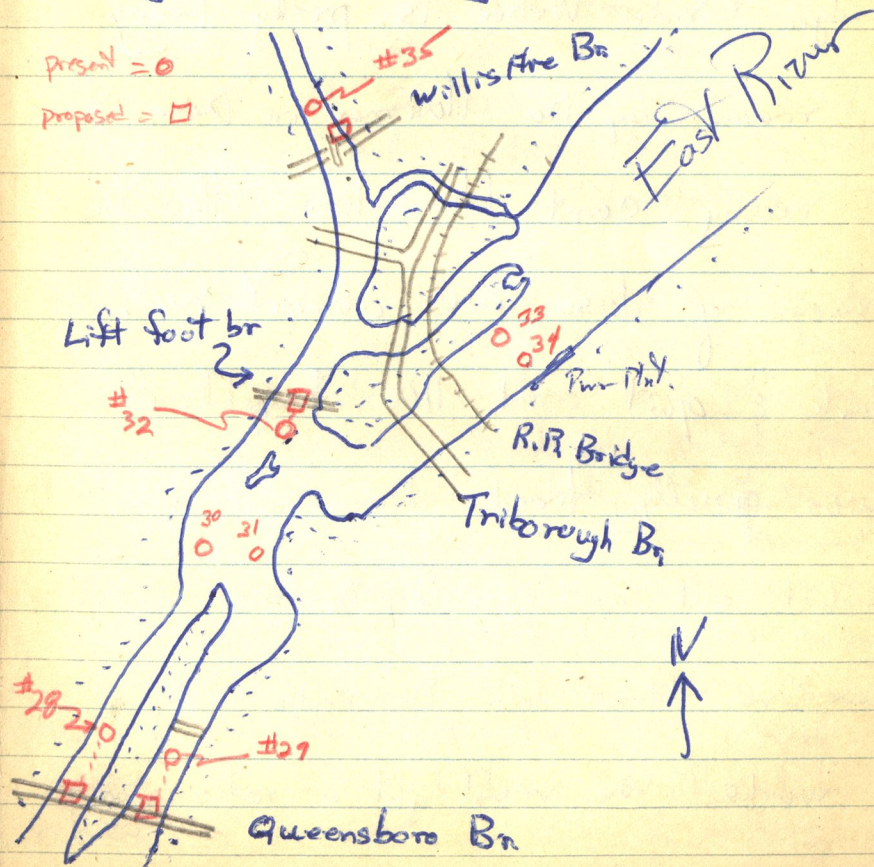 present =
proposed =
#35
Willis Ave Br.
East River
Lift foot br
33
34
#32
Pwr Plnt.
R.R. Bridge
Triborough Br.
30
31
N
#28
#29
Queensboro Br.